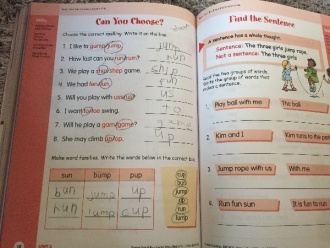 Can You Choose?
Choose the correct spelling. Write it on the line.
1. I like to gump/jump.
jump
2. How fast can you run/rum?
run
3. We play a chip/step game.
4. We had fer/fun.
5. Will you play with us/uz?
us
6. I want to/too swing.
to
7. Will he play a gam/game?
game
8. She may climb up/op.
up
Make word families. Write the words below in the correct box.
sun bump pup
bun jump up
run bump cup
cup
bun
jump
up
run
bump
Find the Sentence
A sentence has a whole thought.
Sentence: The three girls jump rope.
Not a sentence: The three girls
Read the two groups of words.
to the group of words that
makes a sentence.
1. Play ball with me The ball
2. Kim and I Kim turns to the
3. Jump rope with us With me
4. Run fun sun It is fun to run